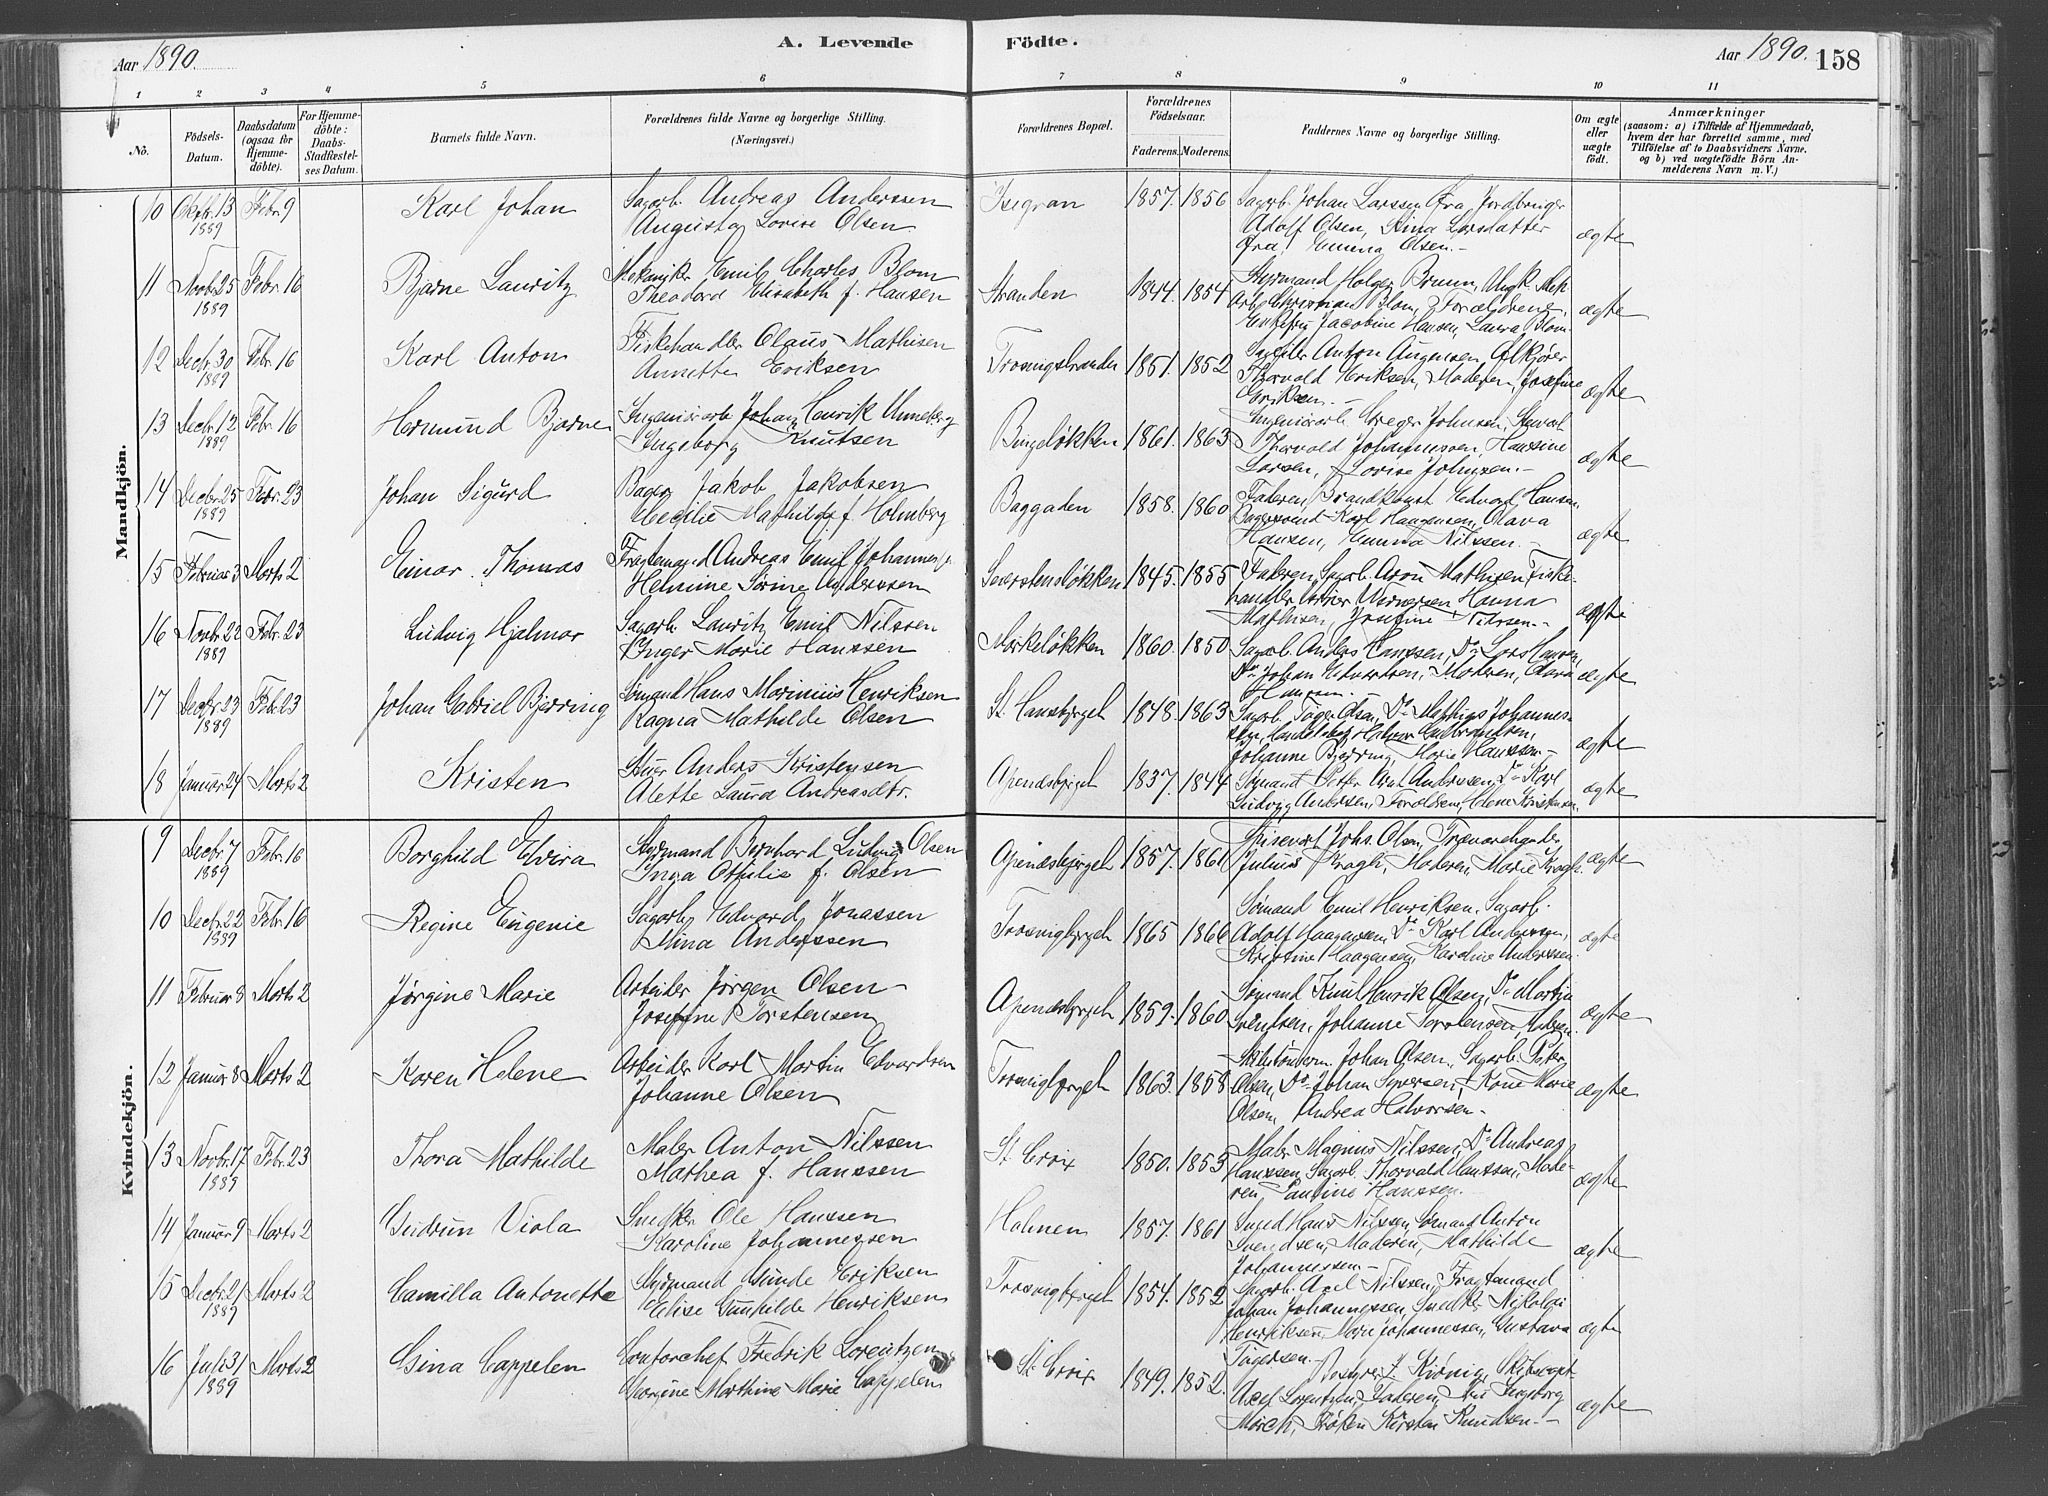 Aar 1890.
A. Levende Födte.
Aar 1890. 158
1 2 3 4 5 6 7 8 9 10 11
No.
Födsels-Datum.
Daabsdatum (ogsaa for Hjemme-döbte).
For Hjemme-döbte: Daabs-Stadfæstel-ses Datum.
Barnets fulde Navn.
Forældrenes fulde Navne og borgerlige Stilling.
(Næringsvei.)
Forældrenes Bopæl.
Forældrenes Födselsaar.
Faderens. Moderens.
Faddernes Navne og borgerlige Stilling.
Om ægte eller uægte födt.
Anmærkninger
(saasom: a) i Tilfælde af Hjemmedaab,
hvem der har forrettet samme, med
Tilföielse af to Daabsvidners Navne.
og b) ved uægtefödte Börn An-
melderens Navn m. V.)
Mandkjön.
10 Oktbr. 13 1889 Febr. 9 Karl Johan
Sagarb. Andreas Anderssen
Augusta Lovise Olsen
Isegran 1857. 1856
Sagarb. Johan Larssen Øra, Jordbruger
Adolf Olsen, Stina Larsdatter
Øra, Emma Olsen.-
ægte
11 Novbr. 25 1889 Febr. 16 Bjarne Lauritz
Mekaniker Emil Charles Blom
Theodora Elisabeth f. Hansen
Stranden 1844. 1854
Styrmand Holger Bruun, Ungk. Mek.
Arb. Christian Blom, Forældrene,
Enkefru Jacobine Hansen, Laura Blom.
ægte
12 Decbr. 30 1889 Febr. 16 Karl Anton
Fiskehandler Olaus Mathisen
Annette Eriksen
Trosvigstranden 1851. 1852
Anton Augensen,
Thorvald Eriksen, Moderen, Josefine
Eriksen.-
ægte
13 Decbr. 12 1889 Febr. 16 Hermund Bjarne
Ingeniørarb. Johan Henrik Unneberg
Ingeborg Knutsen
Bingeløkken 1861. 1863
Ingeniørarb. Greger Johnsen, Stuvat
Thorvald Johannessen, Hansine
Larsen, Lovise Johnsen.-
ægte
14 Decbr. 25 1889 Febr. 23 Johan Sigurd
Bager Jakob Jakobsen
Cecilie Mathilde f. Holmberg
Baggaden 1858. 1860
Faderen, Brandkonst. Edvard Hansen
Bagersvend Karl Haagensen, Olava
Hansen, Emma Nilssen.-
ægte
15 Februar 3 Marts 2 Einar Thomas
Fragtemand Andreas Emil Johannesen
Helmine Sørine Anderssen
Sverstensløkken 1845. 1855
Faderen, Sagarb. Aron Mathisen, Fiske-
handler Wernersen, Hanna
Mathisen, Josefine Nilssen.-
ægte
16 Novbr. 22 1889 Febr. 23 Ludvig Hjalmar
Sagarb. Lauritz Emil Nilssen
Inger Marie Hanssen
Mørkeløkken 1860. 1850
Sagarb. Anders Hanssen, Do Lars Hansen,
Do Johan Edvardsen, Moderen, Olava
Hansen.-
ægte
17 Decbr. 23 1889 Febr. 23 Johan Gabriel Bjerring
Sømand Hans Marinius Henriksen
Ragna Mathilde Olsen
St. Hansbjerget 1848. 1863
Sagarb. Olsen, Do Mathias Johannes-
sen, Handelsbet. Halvor Gulbrandsen,
Johanne Bjerring, Marie Hanssen.-
ægte
18 Januar 24 Marts 2 Kristen
Stuer Anders Kristensen
Alette Laura Andreasdtr.
Apenæsbjerget 1837. 1844
Sømand Petter Anderssen, Do Karl
Ludvig Andersen, Forældrene, Helene Kristensen.
ægte
Kvindekjön.
9 Decbr. 7 1889 Febr. 16 Borghild Elvira
Styrmand Bernhard Ludvig Olsen
Inga Othilie f. Olsen
Apenæsbjerget 1857. 1861
Spisevært Johs. Olsen, Trævarehandler
Julius Kragh, Moderen, Marie Kragh.
ægte
10 Decbr. 22 1889 Febr. 16 Regine Eugenie
Sagarb. Edvard Jonassen
Mina Anderssen
Trosvigbjerget 1865 1866
Sømand Emil Henriksen, Sagarb.
Adolf Haagensen, Do Karl Anderssen,
Kristine Haagensen, Karoline Anderssen
ægte
11 Februar 8 Marts 2 Jørgine Marie
Arbeider Jørgen Olsen
Josefine Torstensen
Apenæsbjerget 1859. 1860
Sømand Emil Henrik Olsen, Do Martin
Svendsen, Johanne Torstensen,
ægte
12 Januar 8 Marts 2 Karen Helene
Arbeider Karl Martin Edvardsen
Johanne Olsen
Trosvigbjerget 1863. 1858
Skibstømrm. Johan Olsen, Sagarb. Peter
Olsen, Do Johan Syversen, Karen Marie
Olsen, Andrea Halvorsen.-
ægte
13 Novbr. 17 1889 Febr. 23 Thora Mathilde
Maler Anton Nilssen
Mathea f. Hanssen
St. Croix 1850. 1853
Maler Magnus Nilssen, Do Andreas
Hanssen, Sagarb. Thorvald Hanssen, Mode-
ren, Pauline Hanssen.
ægte
14 Januar 9 Marts 2 Gudrun Viola
Snedker Ole Hanssen
Karoline Johannessen
Holmen 1857. 1861
Smed Hans Nilssen, Sømand Anton
Svendsen, Moderen, Mathilde
Johannessen.-
ægte
15 Decbr. 21 1889 Marts 2 Camilla Antonette
Styrmand Gunde Eriksen
Elise Gunhilde Henriksen
Trosvigbjerget 1854. 1852
Sagarb. Axel Nilssen, Fragtemand
Johan Johannessen, Snedker Nikolai
Henriksen, Marie Johannessen, Gustava
Tögersen.
ægte
16 Juli 31 1889 Marts 2 Gina Cappelen
Contorchef Fredrik Lorentzen
Georgine Mathine Marie Cappelen
St. Croix 1849. 1852.
Kiønig, Skibscapt.
Axel Lorentzen, Faderen, Fru Ingeborg
Mørch, Frøken Kirsten Knudsen.-
ægte